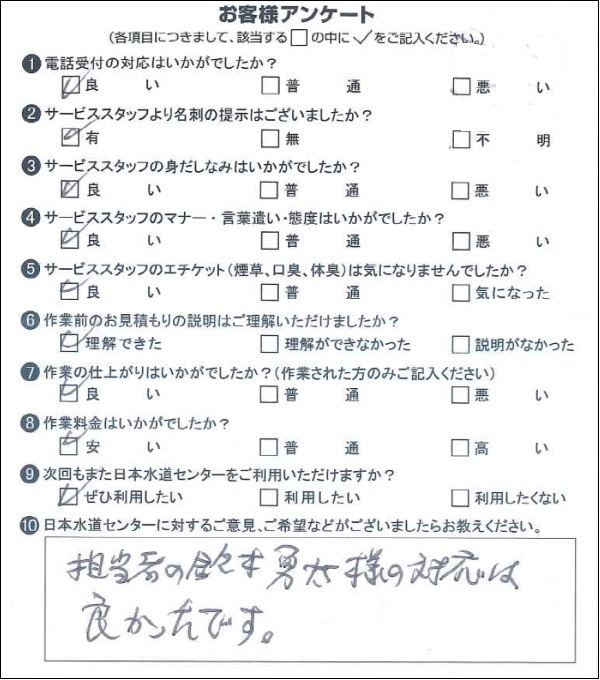 お客様アンケート
(各項目につきまして、該当する□の中に✓をご記入ください。)
❶電話受付の対応はいかがでしたか?
☑良 い □普 通 □悪 い
❷サービススタッフより名刺の提示はございましたか?
☑有 □無 □不 明
❸サービススタッフの身だしなみはいかがでしたか?
☑良 い □普 通 □悪 い
❹サービススタッフのマナー・言葉遣い・態度はいかがでしたか?
☑良 い □普 通 □悪 い
❺サービススタッフのエチケット(煙草、口臭、体臭)は気になりませんでしたか?
☑良 い □普 通 □気になった
❻作業前のお見積もりの説明はご理解いただけましたか?
☑理解できた □理解ができなかった □説明がなかった
❼作業の仕上がりはいかがでしたか?(作業された方のみご記入ください)
☑良 い □普 通 □悪 い
❽作業料金はいかがでしたか?
☑安 い □普 通 □高 い
❾次回もまた日本水道センターをご利用いただけますか?
☑ぜひ利用したい □利用したい □利用したくない
❿日本水道センターに対するご意見、ご希望などがございましたらお教えください。
担当者の鈴木勇太様の対応は
良かったです。